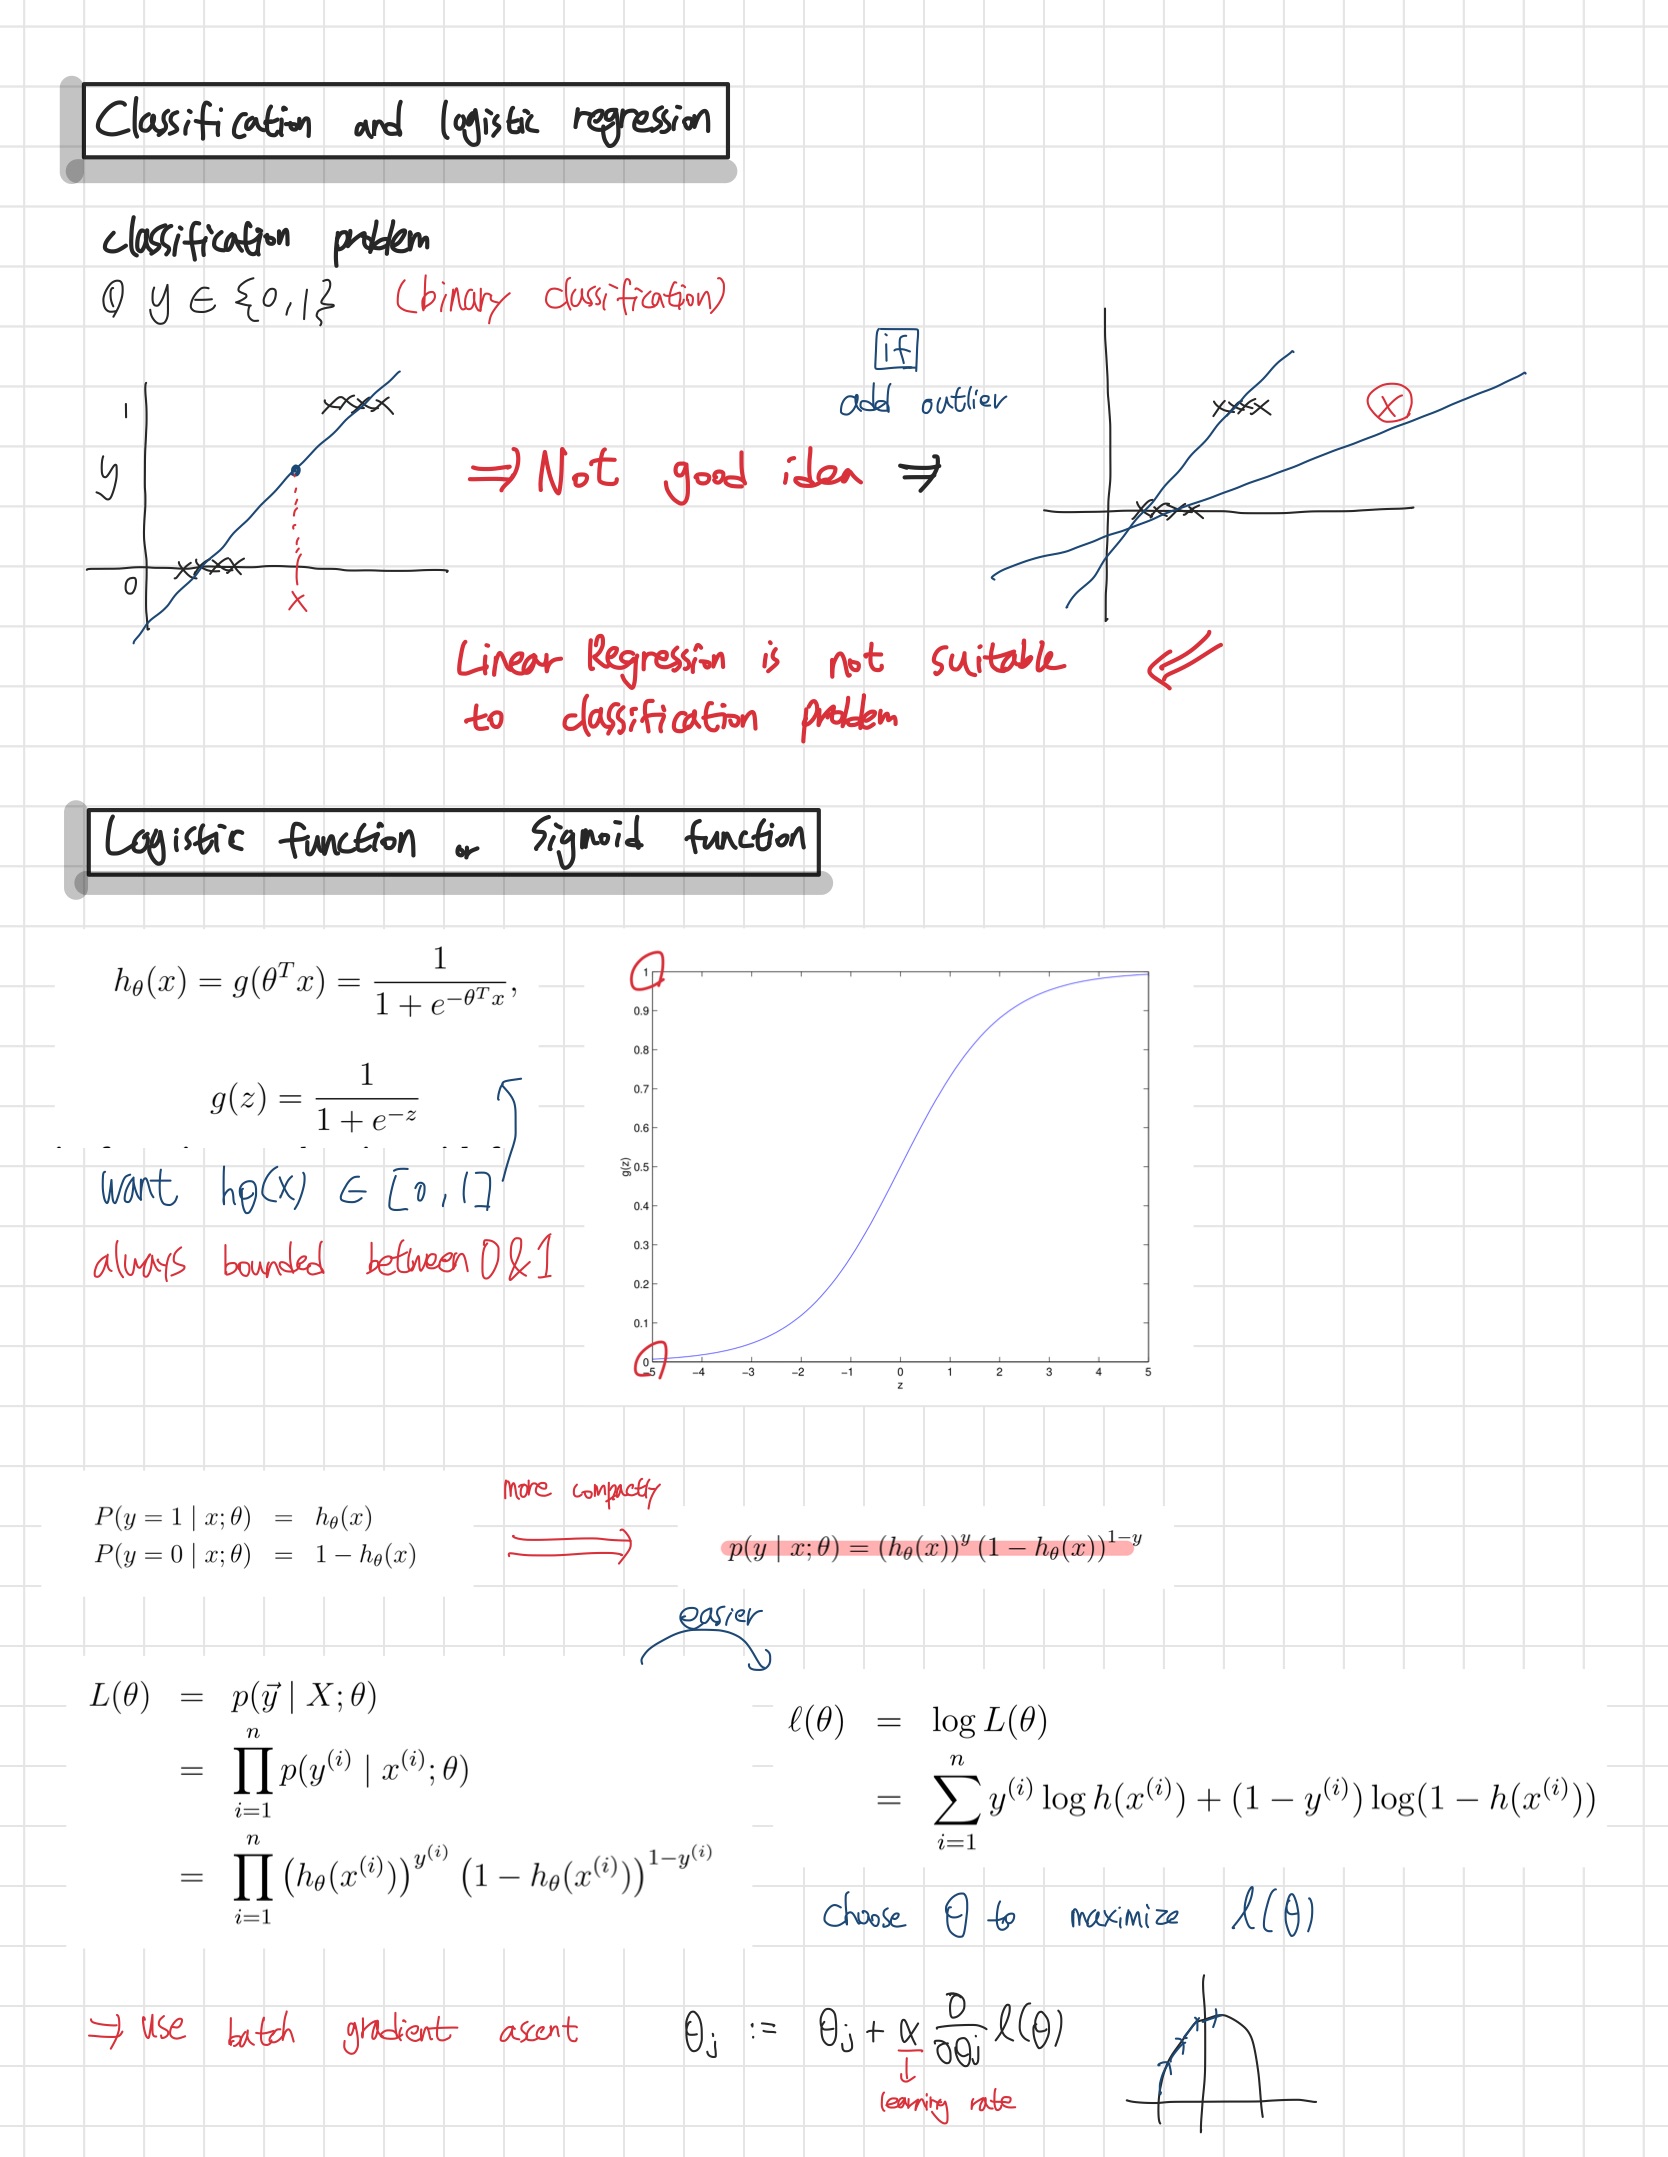 Classification and logistic regression
classification problem
① y ∈ {0,1} (binary classification)
if
add outlier
1
y
0
x
⇒ Not good idea ⇒
x
Linear Regression is not suitable
to classification problem
Logistic function or Sigmoid function
h_θ(x) = g(θ^T x) = 1 / (1 + e^{−θ^T x}),
g(z) = 1 / (1 + e^{−z})
want hθ(x) ∈ [0,1]
always bounded between 0&1
1
0.9
0.8
0.7
0.6
0.5
0.4
0.3
0.2
0.1
0
g(z)
−5 −4 −3 −2 −1 0 1 2 3 4 5
z
more compactly
P(y = 1 | x; θ) = h_θ(x)
P(y = 0 | x; θ) = 1 − h_θ(x)
p(y | x; θ) = (h_θ(x))^y (1 − h_θ(x))^{1−y}
easier
L(θ) = p(y⃗ | X; θ)
= ∏_{i=1}^{n} p(y^{(i)} | x^{(i)}; θ)
= ∏_{i=1}^{n} (h_θ(x^{(i)}))^{y^{(i)}} (1 − h_θ(x^{(i)}))^{1−y^{(i)}}
ℓ(θ) = log L(θ)
= ∑_{i=1}^{n} y^{(i)} log h(x^{(i)}) + (1 − y^{(i)}) log(1 − h(x^{(i)}))
choose θ to maximize l(θ)
⇒ use batch gradient ascent
θj := θj + α ∂/∂θj l(θ)
learning rate